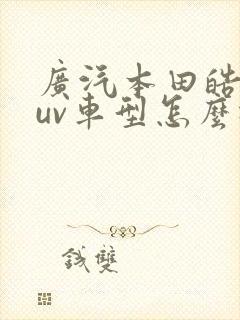 廣汽本田皓
uv車型怎麽
錢雙